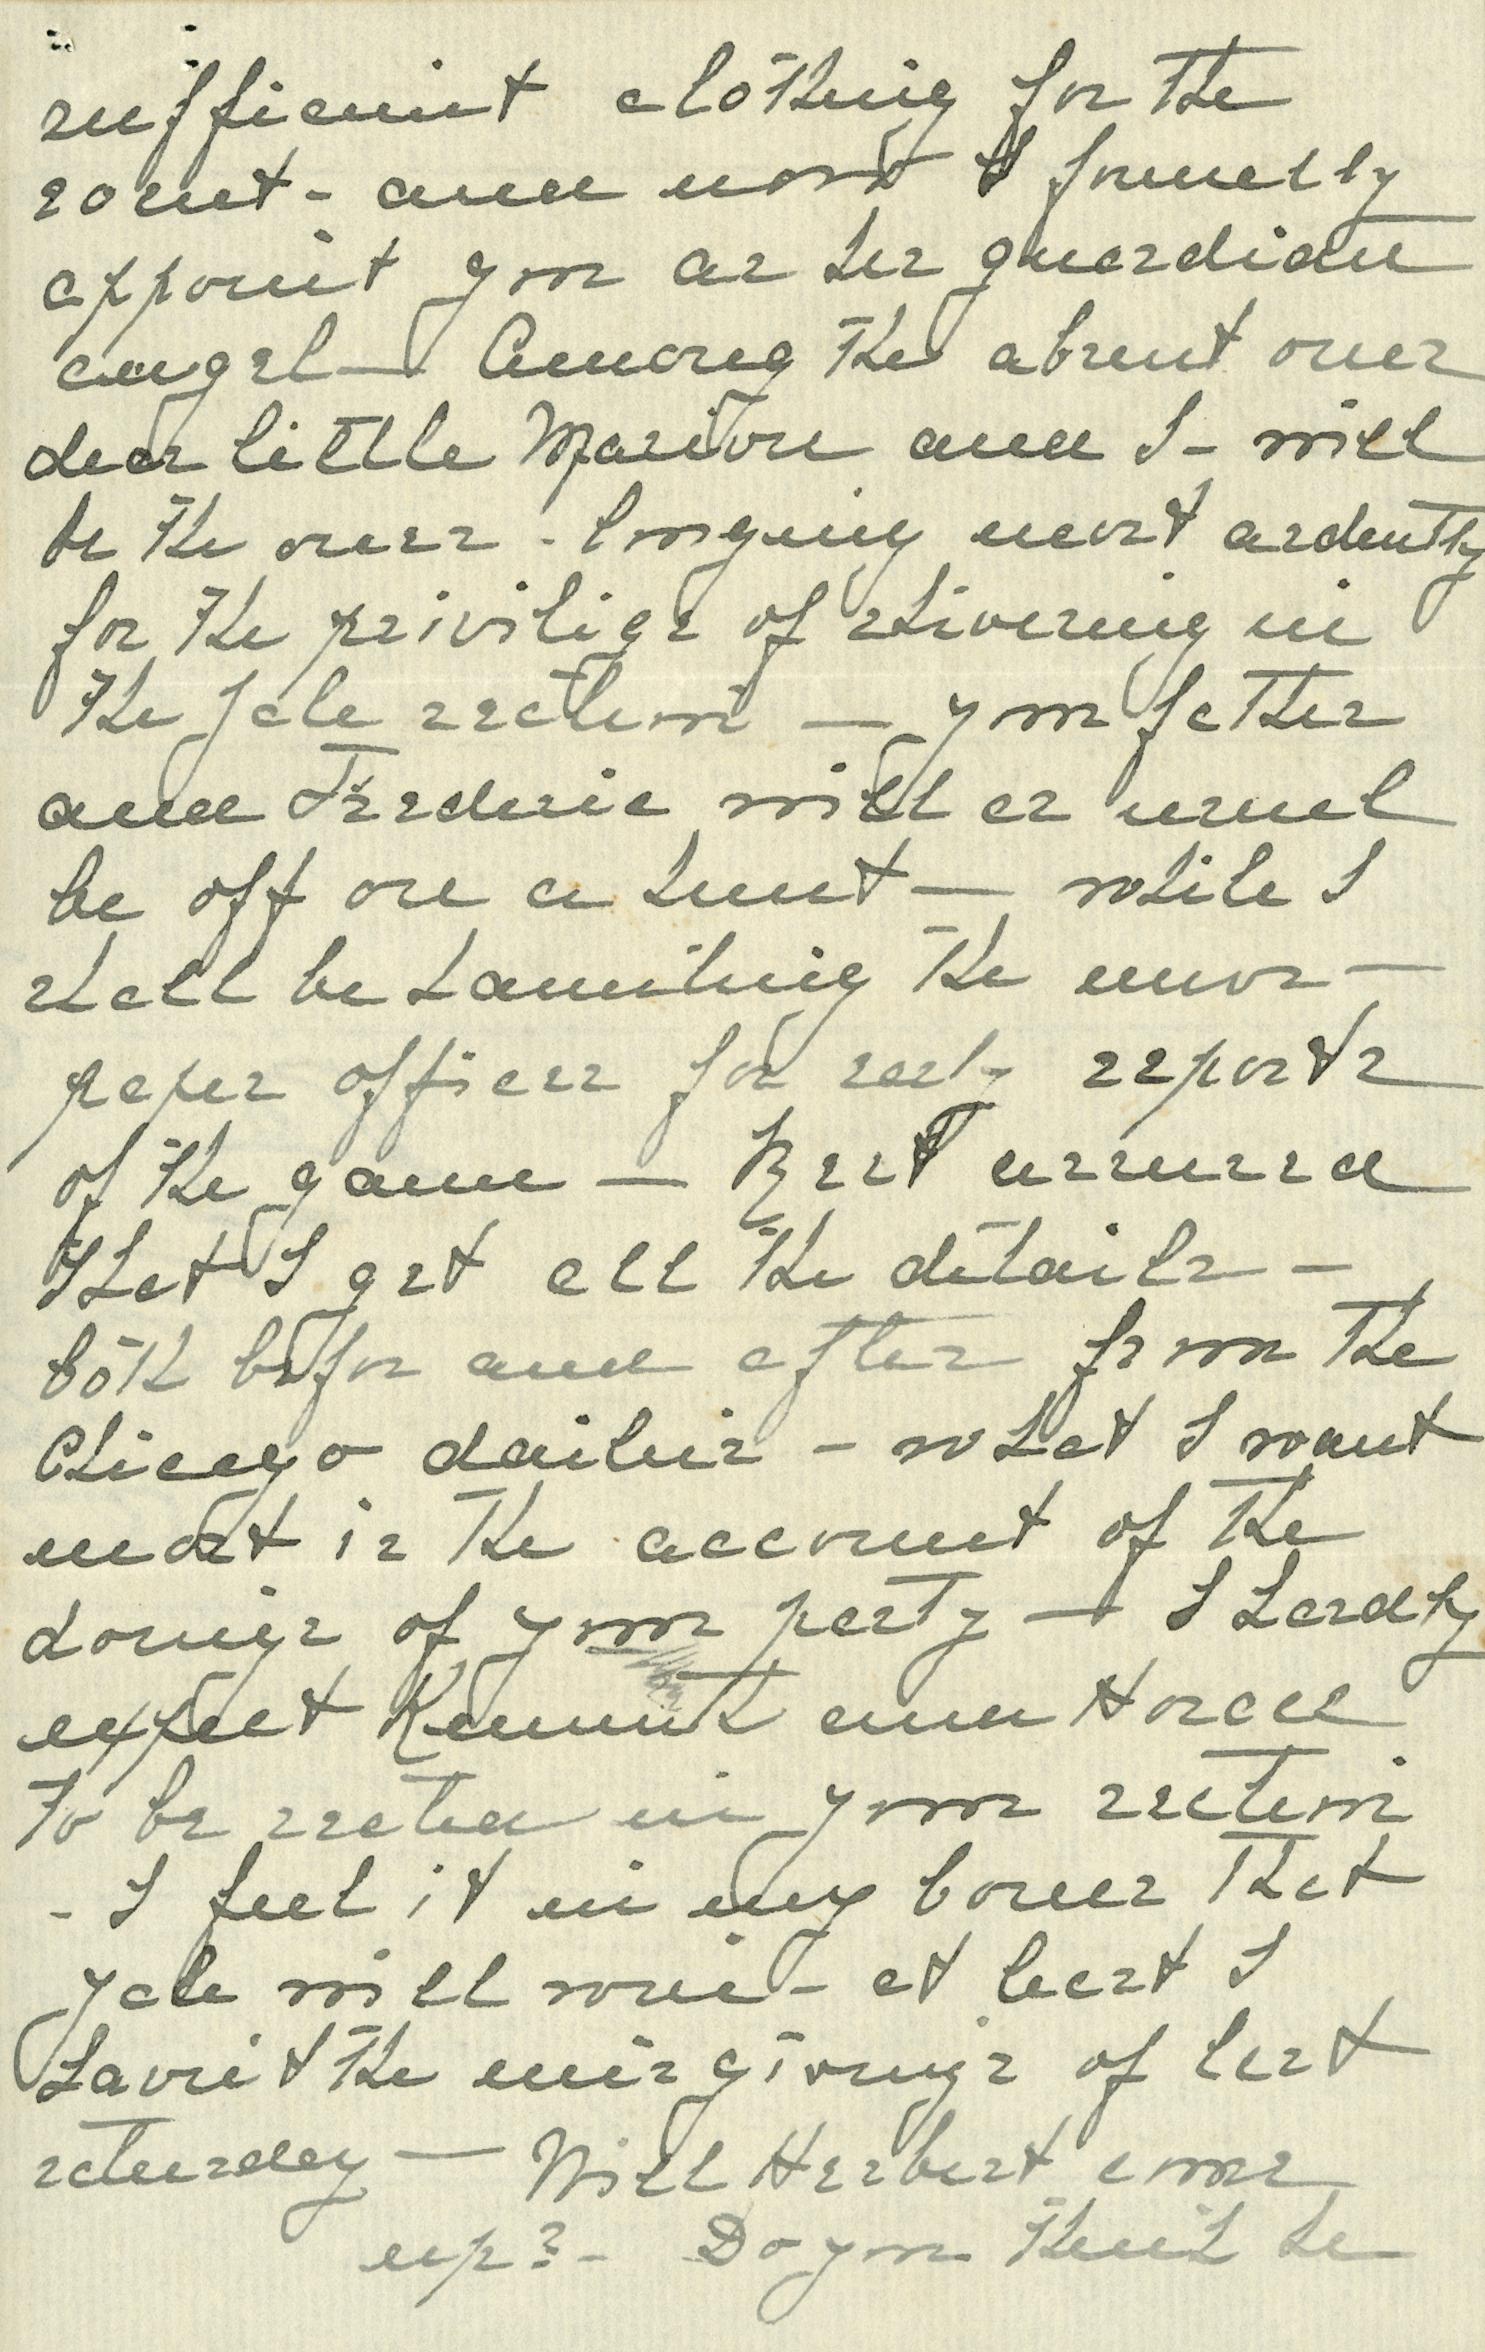 sufficient clothing for the
event - and now I formally
appoint you as her guardian
angel — Among the absent ones
dear little Marion and I - will
be the ones - longing most ardently
for the privilige of shivering in
the Yale section — your father
and Frederic will as usual
be off on a hunt — while I
shall be haunting the news —
paper offices for early reports
of the game — Rest assured
that I get all the details —
both befor and after from the
Chicago dailies - what I want
most is the account of the
doings of your party — I hardly
expect Kenneth and Horace
to be seated in your section
- I feel it in my bones that
Yale will win - at least I
havn't the misgivings of last
saturday — Will Herbert come
up? - Do you think he